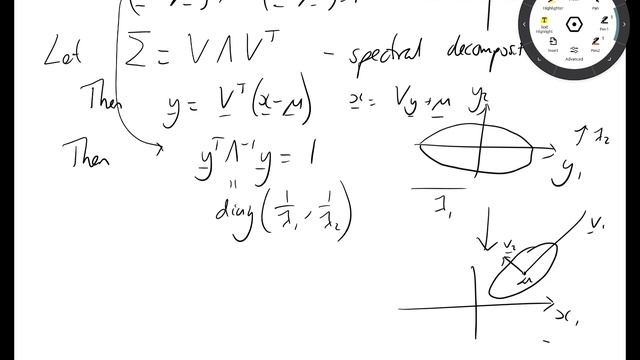 Let Σ = V Λ Vᵀ - spectral decomposit
Then y = Vᵀ(x-μ) x = Vy + μ y₂
Then yᵀ Λ⁻¹ y = 1 y₁ λ₂
diag(1/λ₁, 1/λ₂) λ₁
v₁
v₂
μ
x₁
Highlighter
Pen
Text Highlight
Pen1
Insert
Pen2
Advanced